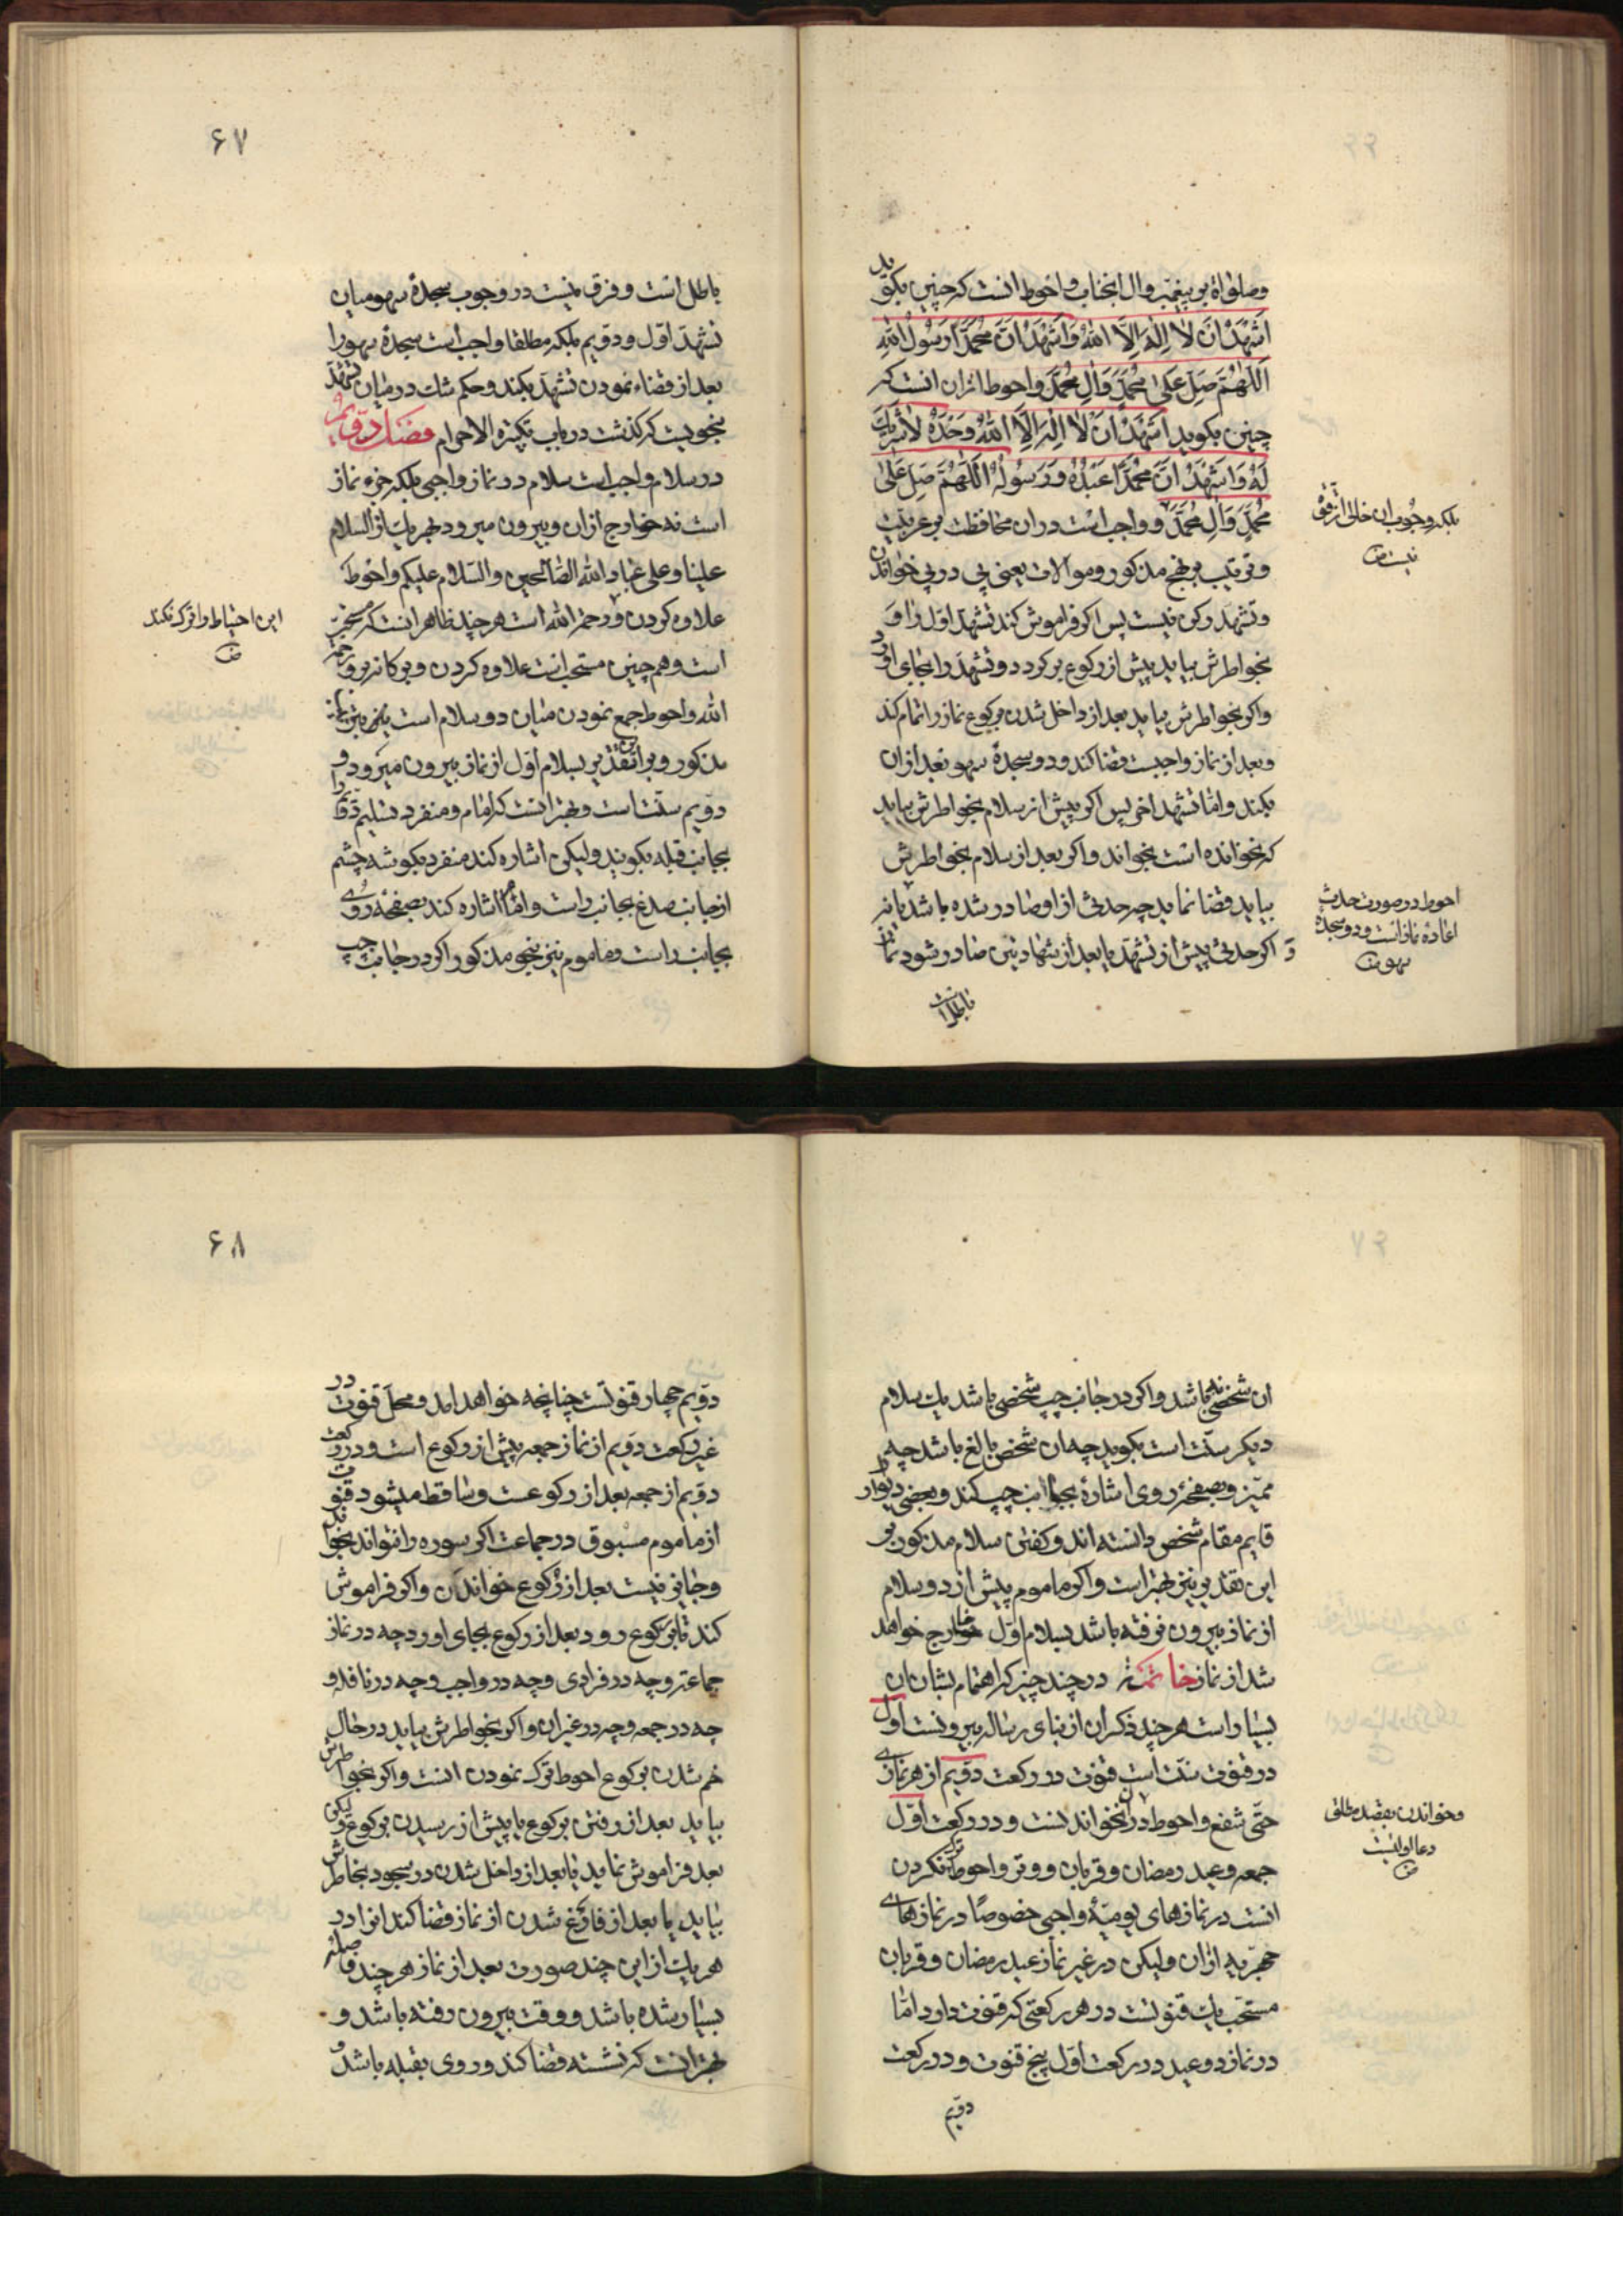 وصلواة بر پیغمبر وال انجناب واحوط انست که چنین بکوید
اَشْهَدُ اَنْ لٰا اِلٰهَ اِلَّا اللّٰهُ وَاَشْهَدُ اَنَّ مُحَمَّدًا رَسُولُ اللّٰهِ
اَللّٰهُمَّ صَلِّ عَلٰی مُحَمَّدٍ وَاٰلِ مُحَمَّدٍ واحوط ازان انست که
چنین بکوید اَشْهَدُ اَنْ لٰا اِلٰهَ اِلَّا اللّٰهُ وَحْدَهُ لٰا شَرِیكَ
لَهُ وَاَشْهَدُ اَنَّ مُحَمَّدًا عَبْدُهُ وَرَسُولُهُ اَللّٰهُمَّ صَلِّ عَلٰی
مُحَمَّدٍ وَاٰلِ مُحَمَّدٍ و واجب است دران محافظت بر عربیت
وترتیب بر نهج مذکور وموالات یعنی پی در پی خواندن
وتشهد رکن نیست پس اکر فراموش کند تشهد اول را و
بخواطرش بیاید پیش از رکوع برکردد وتشهد را بجای اورد
واکر بخواطرش بیاید بعد از داخل شدن برکوع نماز را تمام کند
وبعد از نماز واجبست قضا کند و دو سجدهٔ سهو بعد ازان
بکند واما تشهد اخر پس اکر پیش از سلام بخواطرش بیاید
که نخوانده است بخواند واکر بعد از سلام بخواطرش
بیاید قضا نماید چه حدثی از او صادر شده باشد یا نه
و اکر حدثی پیش از تشهد یا بعد از شهادتین صادر شود نماز
باطل است
بلکه وجوب ان خالی از قوة
نیست ض
احوط در صورت حدث
اعاده نماز است ودو سجدهٔ
سهو ض
۶۷
باطل است وفرق نیست در وجوب سجدهٔ سهو میان
تشهد اول ودویم بلکه مطلقا واجب است سجدهٔ سهو را
بعد از قضاء نمودن تشهد بکند وحکم شك درمیان تشهد
بنحویست که کذشت در باب تکبیرة الاحرام فصل دویم
در سلام واجب است سلام در نماز واجبی بلکه جزء نماز
است نه خارج ازان وبیرون میرود بهر یك از السلام
علینا وعلی عباد الله الصالحین والسلام علیکم واحوط
علاوه کردن ورحمة الله است هر چند ظاهر انست که مستحب
است وهم چنین مستحب است علاوه کردن وبرکاته بر ورحمة
الله واحوط جمع نمودن میان دو سلام است بترتیب
مذکور وبر این تقدیر بسلام اول از نماز بیرون میرود و
دویم سنت است وبهتر انست که امام ومنفرد تسلیم دویم را
بجانب قبله بکویند ولیکن اشاره کند منفرد بکوشه چشم
از جانب صدغ بجانب راست وامام اشاره کند بصفحهٔ روی
بجانب راست وماموم نیز بنحو مذکور اکر در جانب چپ
این احتیاط را ترك نکند
ض
ان شخصی نباشد واکر در جانب چپ شخصی باشد یك سلام
دیکر سنت است بکوید چه ان شخص بالغ باشد چه
ممیز وبصفحهٔ روی اشاره بجانب چپ کند وبعضی دیوار را
قایم مقام شخص دانسته اند وکفتن سلام مذکور بر
این تقدیر نیز بهتر است واکر ماموم پیش از دو سلام
از نماز بیرون نرفته باشد بسلام اول خارج خواهد
شد از نماز خاتمه در چند چیز که اهتمام بشان ان
بسیار است هر چند ذکر ان از بنای رساله بیرونست اول
در قنوت سنت است قنوت در رکعت دویم از هر نمازی
حتی شفع واحوط دران نخواندنست و در رکعت اول
جمعه وعید رمضان وقربان ووتر واحوط ترك نکردن
انست در نمازهای یومیهٔ واجبی خصوصًا در نمازهای
جهریه ازان ولیکن در غیر نماز عید رمضان وقربان
مستحب یك قنوتست در هر رکعتی که قنوت دارد اما
در نماز دو عید در رکعت اول پنج قنوت و در رکعت
دویم
وخواندن بقصد مطلق
دعا اولیست
ض
۶۸
دویم چهار قنوتست چنانچه خواهد امد ومحل قنوت در
غیر رکعت دویم از نماز جمعه پیش از رکوع است و در رکعت
دویم از جمعه بعد از رکوعست وساقط میشود قنوت
از ماموم مسبوق در جماعت اکر سوره را نتواند بخواند
وجایز نیست بعد از رکوع خواندن واکر فراموش
کند تا برکوع رود بعد از رکوع بجای اورد چه در نماز
جماعت وچه در فرادی وچه در واجب وچه در نافله و
چه در جمعه وچه در غیر ان واکر بخواطرش بیاید در حال
خم شدن برکوع احوط ترك نمودن انست واکر بخواطرش
بیاید بعد از رفتن برکوع یا پیش از رسیدن برکوع ولیکن
بعد فراموش نماید یا بعد از داخل شدن در سجود بخاطرش
بیاید یا بعد از فارغ شدن از نماز قضا کند انرا در
هر یك از این چند صورت بعد از نماز هر چند فاصله
بسیار شده باشد و وقت بیرون رفته باشد و
بهتر انست که نشسته قضا کند وروی بقبله باشد و